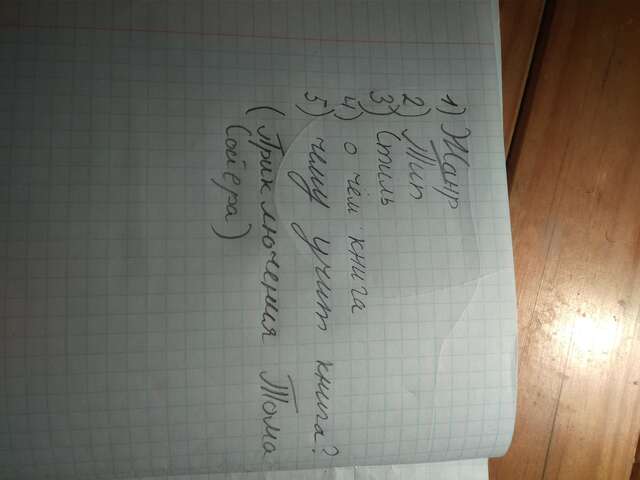 1) Жанр
2) Тип
3) Стиль
4) о чём книга
5) чему учит книга?
(Приключения Тома
Сойера)